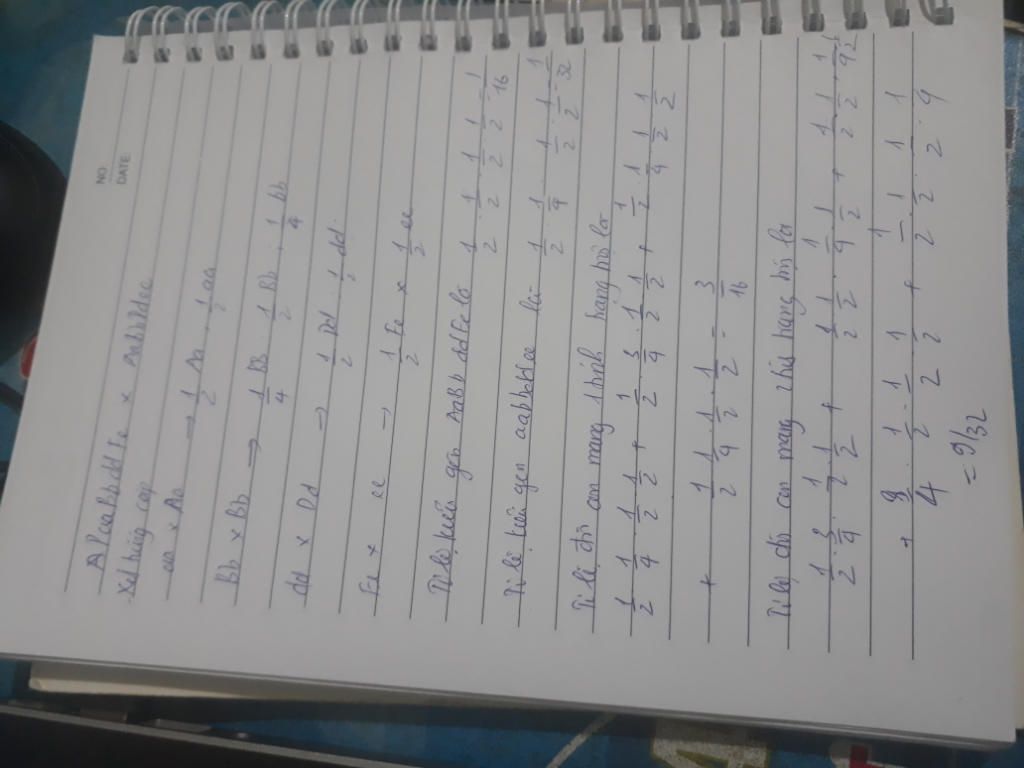 NO.
DATE:
A P: aaBbddEe x AaBbDdee
Xét từng cặp
aa x Aa → 1/2 Aa . 1/2 aa
Bb x Bb → 1/4 BB : 1/2 Bb : 1/4 bb
dd x Dd → 1/2 Dd . 1/2 dd
Ee x ee → 1/2 Ee x 1/2 ee
Tỉ lệ kiểu gen AaBb ddEe là 1/2 . 1/2 . 1/2 . 1/2 = 1/16
Tỉ lệ kiểu gen aabbddee là 1/2 . 1/4 . 1/2 . 1/2 = 1/32
Tỉ lệ đời con mang 1 tính trạng trội là
1/2 . 1/4 . 1/2 . 1/2 + 1/2 . 3/4 . 1/2 . 1/2 + 1/2 . 1/4 . 1/2 . 1/2
+ 1/2 . 1/4 . 1/2 . 1/2 = 3/16
Tỉ lệ đời con mang tính trạng là
1/2 . 3/4 . 1/2 . 1/2 + 1/2 . 1/2 . 1/4 . 1/2 + 1/2 . 1/2 .
= 9/32